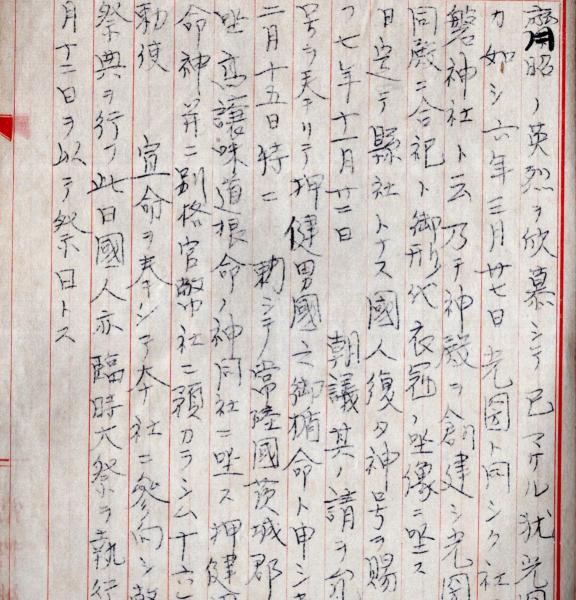 齊昭ノ英烈ヲ欣慕シテ已マケル犹光圀
カ如シ六年三月廿七日光圀ト同シク社
磐神社ト云乃チ神殿ヲ創建シ光圀
同殿ニ合祀ト御形代衣冠ノ坐像ニ坐ス
日定テ縣社トナス國人復タ神号ヲ賜
フ七年十一月廿二日　朝議其ノ請ヲ允
号ヲ奉リテ押健男國之御楯命ト申シ
二月十五日特ニ　勅シテ常陸國茨城郡
坐高譲味道根命ノ神同社ニ坐ス押健
命神并ニ别格官幣社ニ預カラシム十六
勅使　宣命ヲ奉シテ本社ニ参向シ
祭典ヲ行フ此日國人亦臨時大祭ヲ執行
月十二日ヲ以テ祭日トス